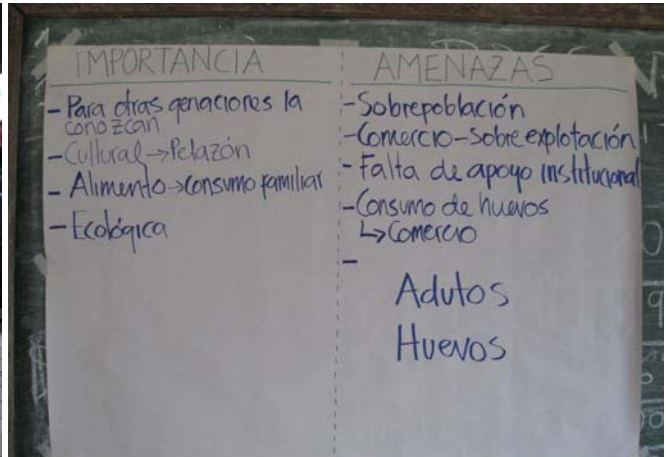 IMPORTANCIA
- Para otras genaciones la
conozcan
- Cultural → Pelazón
- Alimento → consumo familiar
- Ecológica
AMENAZAS
- Sobrepoblación
- Comercio - Sobreexplotación
- Falta de apoyo institucional
- Consumo de huevos
↳ Comercio
-
Adutos
Huevos